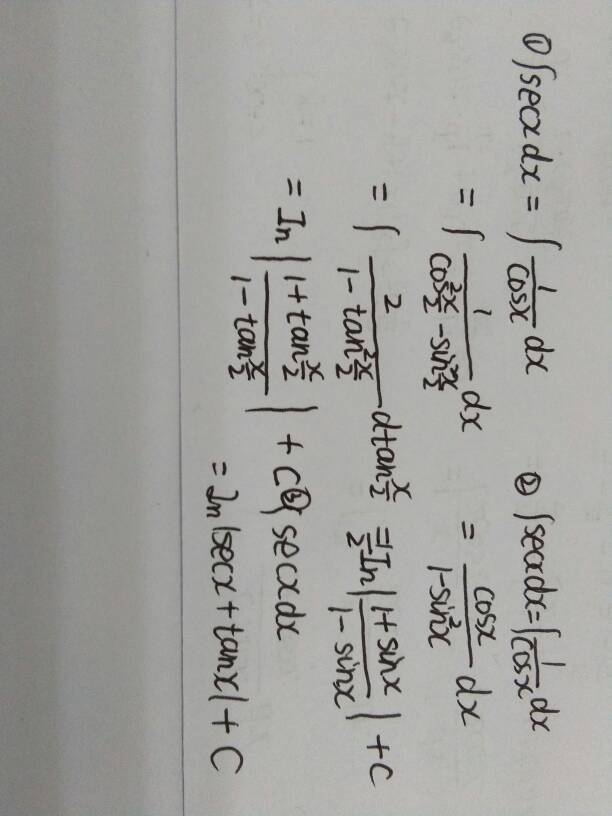 ① ∫secxdx = ∫ 1/cosx dx
= ∫ 1/(cos²x/2 - sin²x/2) dx
= ∫ 2/(1-tan²x/2) dtanx/2
= In|(1+tanx/2)/(1-tanx/2)| + C
② ∫secxdx = ∫ 1/cosx dx
= cosx/(1-sin²x) dx
= 1/2 In|(1+sinx)/(1-sinx)| + C
③ ∫secxdx
= In|secx+tanx| + C